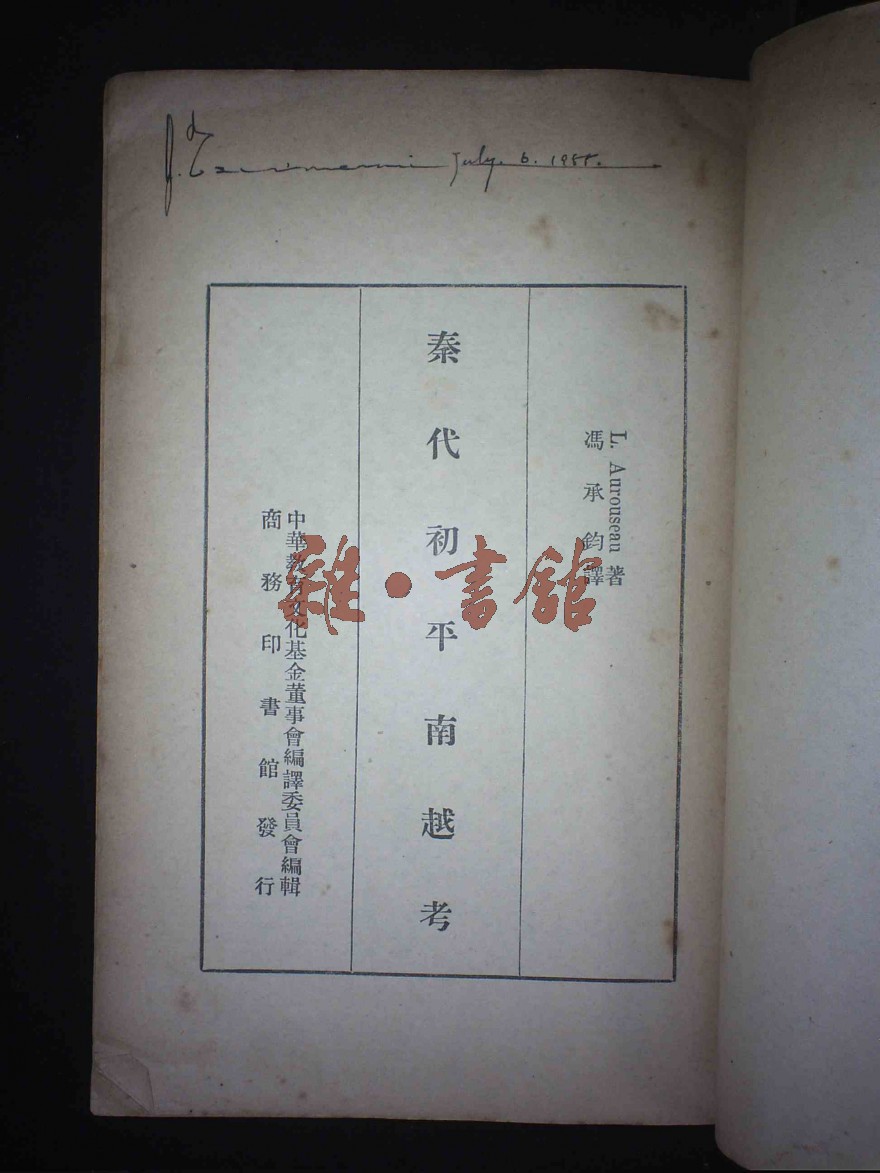 July. 6. 1955.
L. Aurouseau 著
馮承鈞譯
秦代初平南越考
中華教育文化基金董事會編譯委員會編輯
商務印書館發行
雜·書館